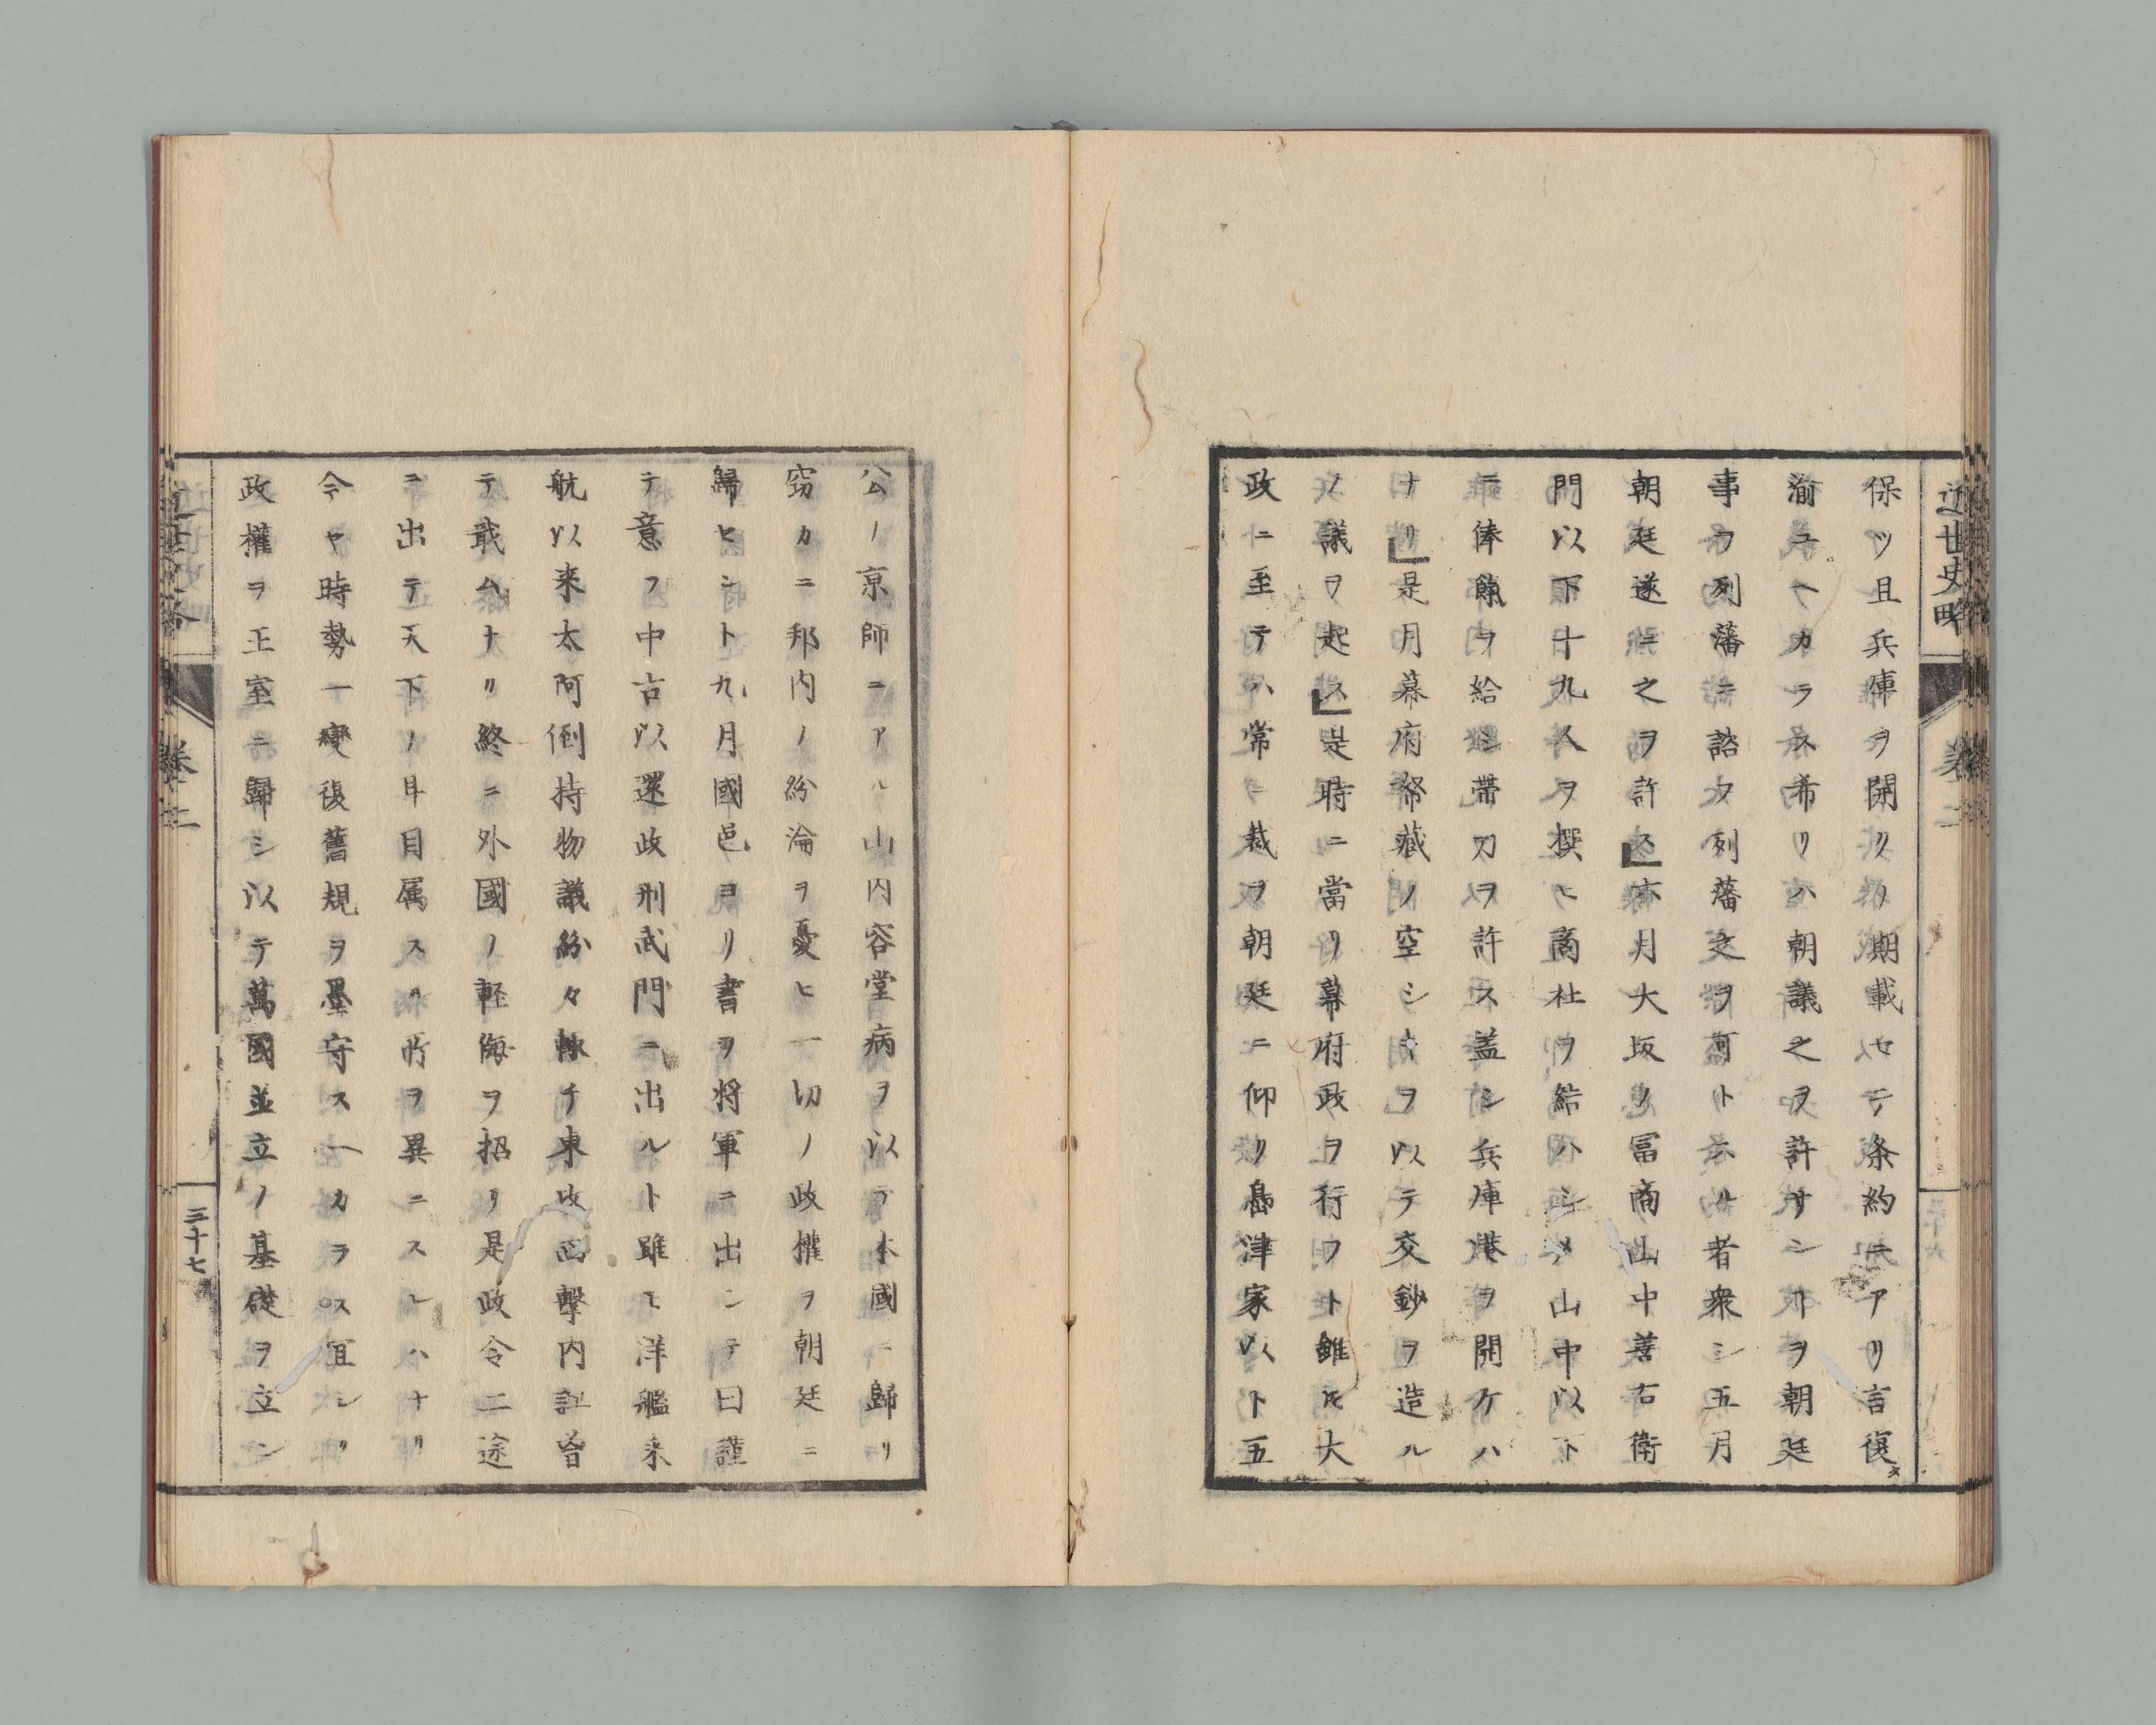 近世史略 巻二
保ツ且兵庫ヲ開クノ期載セテ条約ニアリ言復タ
渝ユヘカラス希クハ朝議之ヲ許サンヿヲ朝廷
事ヲ列藩ニ諮フ列藩之ヲ可トスル者衆シ五月
朝廷遂ニ之ヲ許ス本月大坂ノ冨商山中善右衛
門以下十九人ヲ撰ヒ商社ヲ結ハシメ山中以下
ニ俸餼ヲ給シ帶刀ヲ許ス盖シ兵庫港ヲ開ケハ
ナリ是月幕府帑藏ノ空シキヲ以テ交鈔ヲ造ル
ノ議ヲ起ス是時ニ當リ幕府政ヲ行フト雖𪜈大
政ニ至テハ常ニ裁ヲ朝廷ニ仰リ島津家以下五
公ノ亰師ニアル山内容堂病ヲ以テ本國ニ歸リ
窃カニ邦内ノ紛淪ヲ憂ヒ一切ノ政權ヲ朝廷ニ
歸ヒシト九月國邑ヨリ書ヲ将軍ニ出シテ曰謹
テ意フ中古以還政刑武門ニ出ルト雖モ洋艦来
航以来太阿倒持物議紛々輙チ東攻西擊内訌曾
テ戢ムナリ終ニ外國ノ軽侮ヲ招ク是政令二途
ニ出テ天下ノ耳目属スル所ヲ異ニスレハナリ
今ヤ時勢一變復舊規ヲ墨守スヘカラス宜シク
政權ヲ王室ニ歸シ以テ萬國並立ノ基礎ヲ立ン
近世史略 巻二 三十七